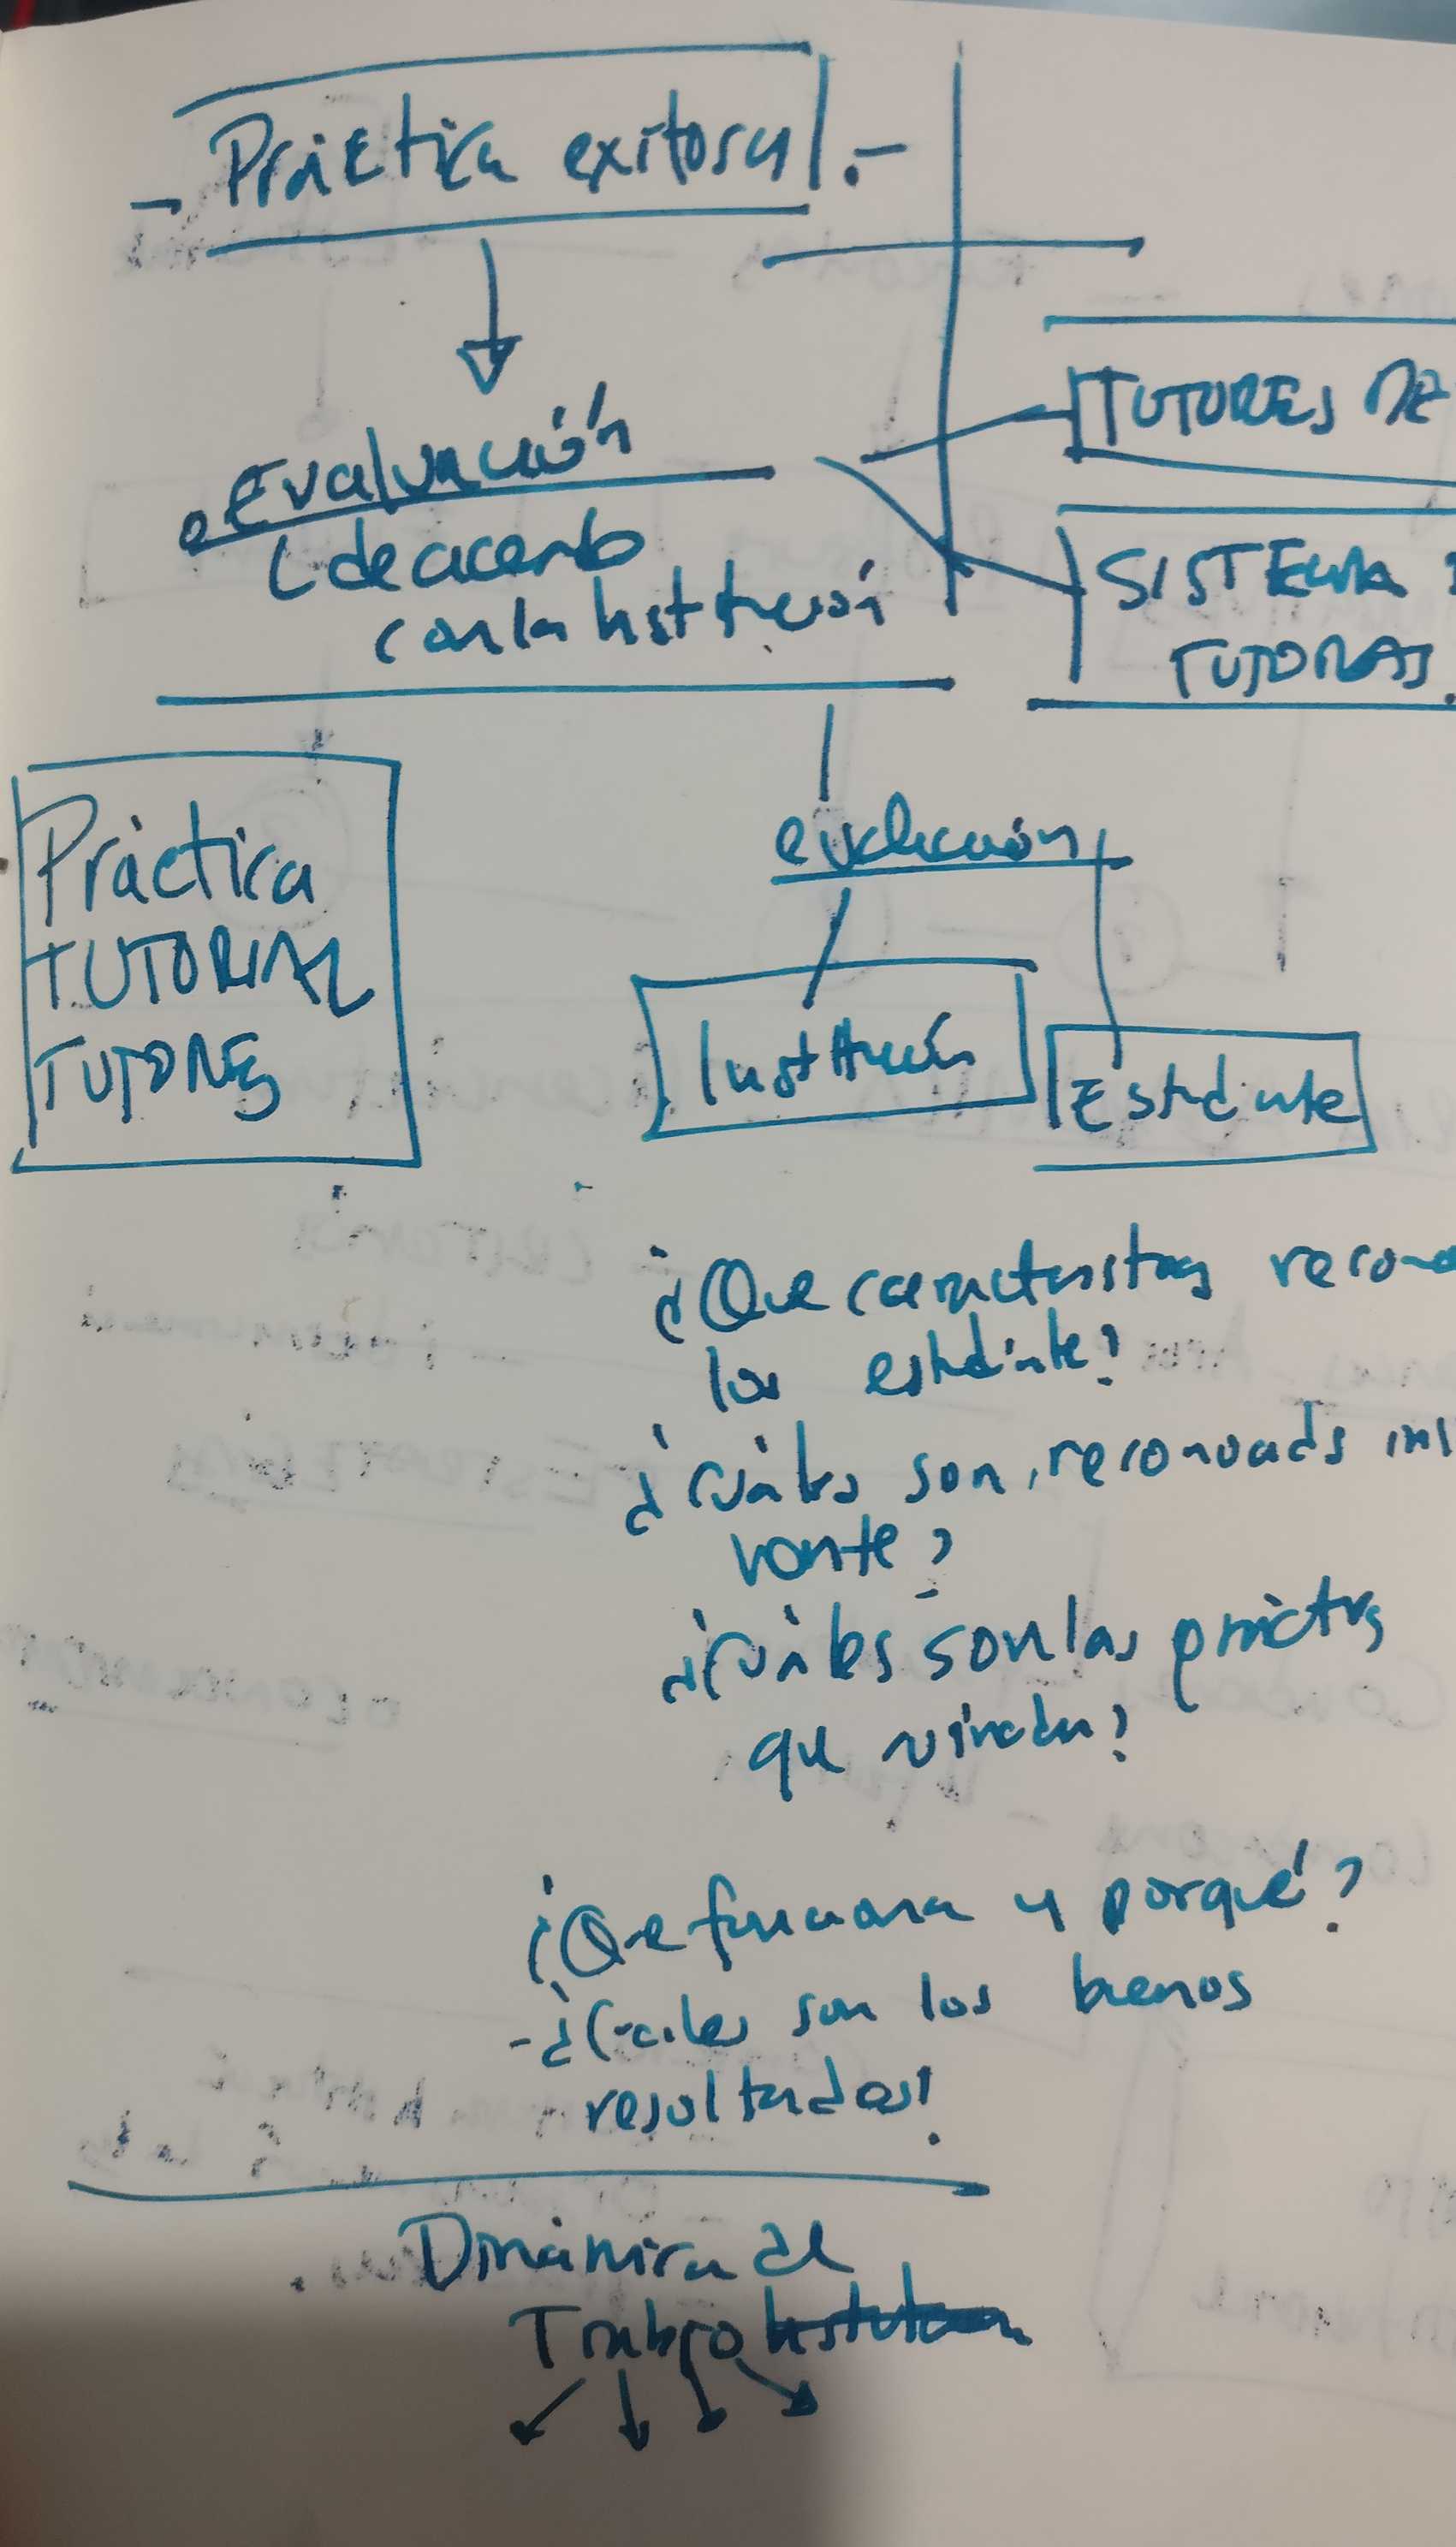 - Práctica exitosa .-
Evaluación
(de acuerdo
con la Institución
TUTORES DE
SISTEMA
TUTORAS.
Práctica
TUTORIAL
TUTORES
evaluación
Institución
Estudiante
¿Que características recono
los estudiante?
¿Cuáles son, reconocads
¿Cuáles son las práctcs
que
¿Que funciona y porqué?
- ¿Cuales son los buenos
resultados?
Dinámica de
Trabajo